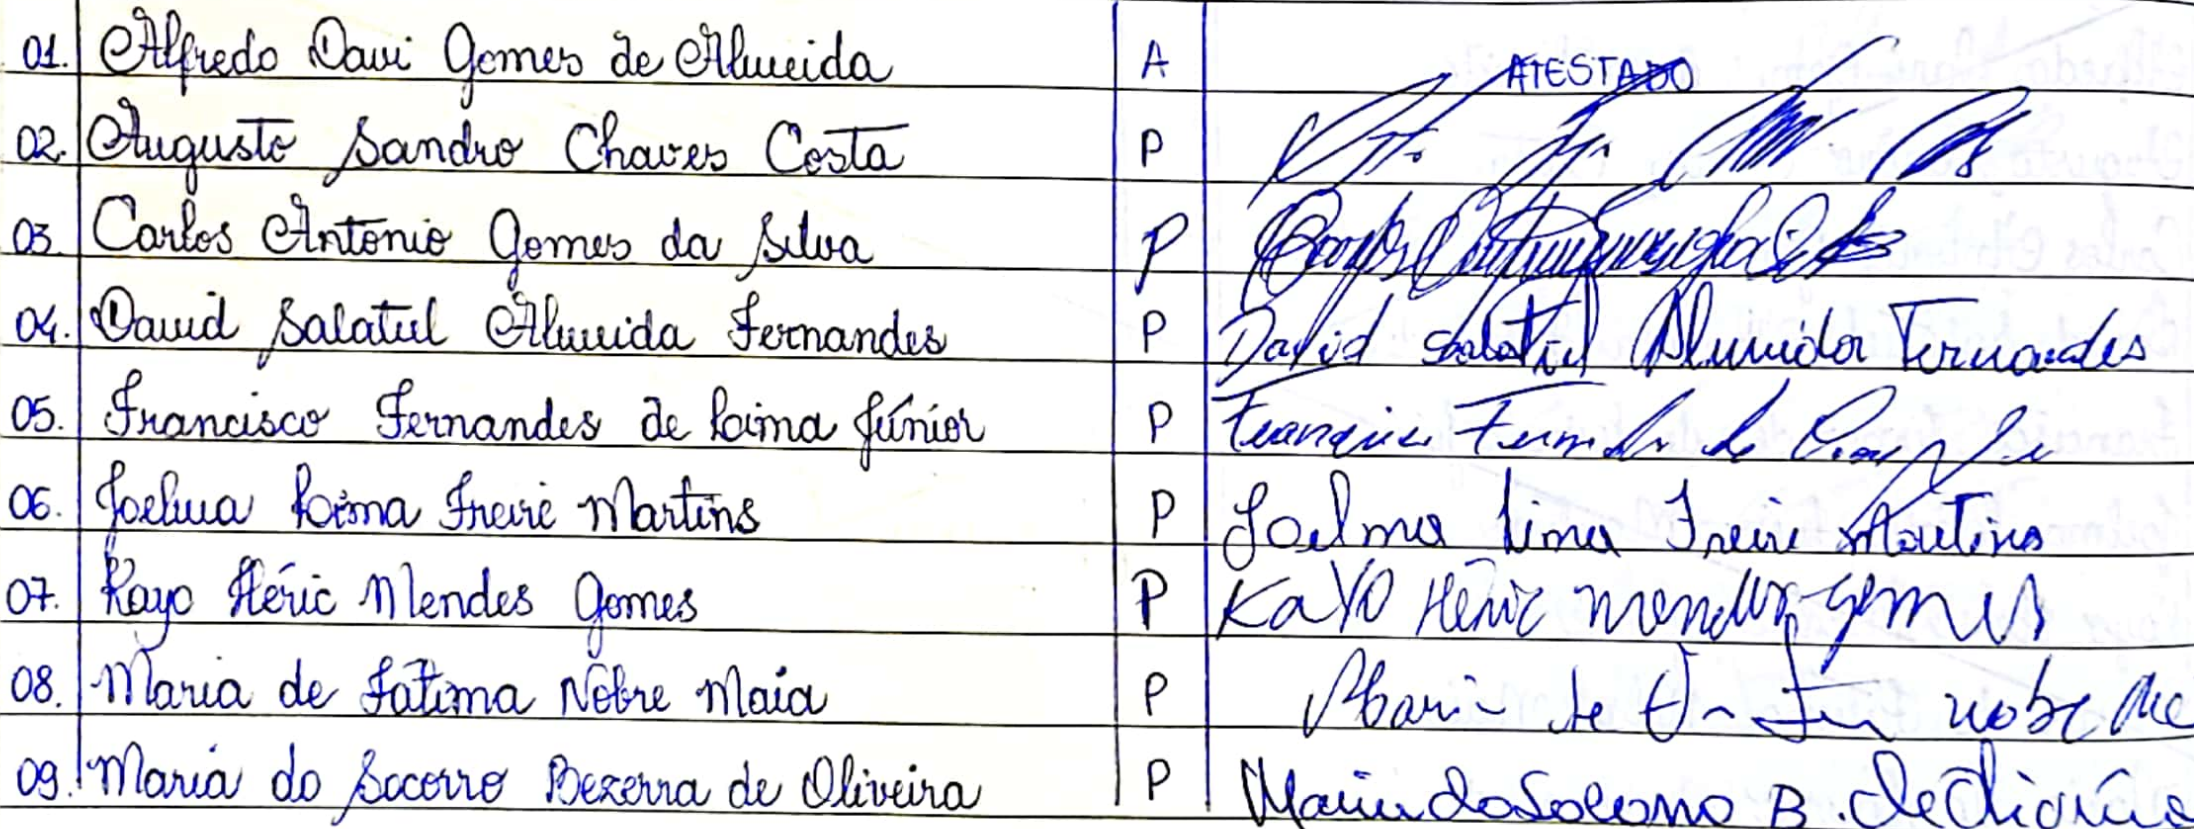 01. Alfredo Davi Gomes de Almeida A ATESTADO
02. Augusto Sandro Chaves Costa P
03. Carlos Antonio Gomes da Silva P
04. David Salatiel Almeida Fernandes P David Salatiel Almeida Fernandes
05. Francisco Fernandes de Lima Júnior P
06. Joelma Lima Freire Martins P Joelma Lima Freire Martins
07. Kayo Héric Mendes Gomes P Kayo Héric Mendes Gomes
08. Maria de Fátima Nobre Maia P Maria de nobre
09. Maria do Socorro Bezerra de Oliveira P Maria do Socorro B. de Oliveira